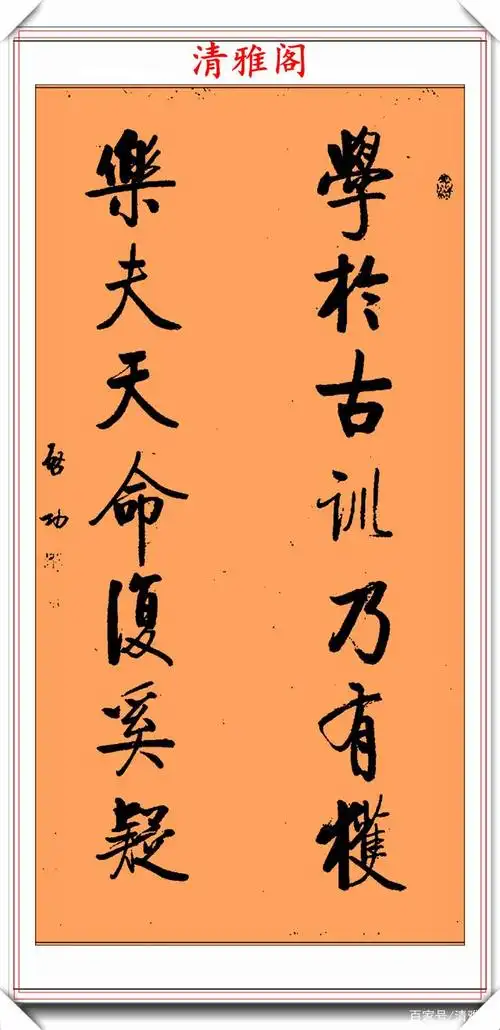 清雅阁
學於古訓乃有獲
樂夫天命復奚疑
啓功
百家号/清雅